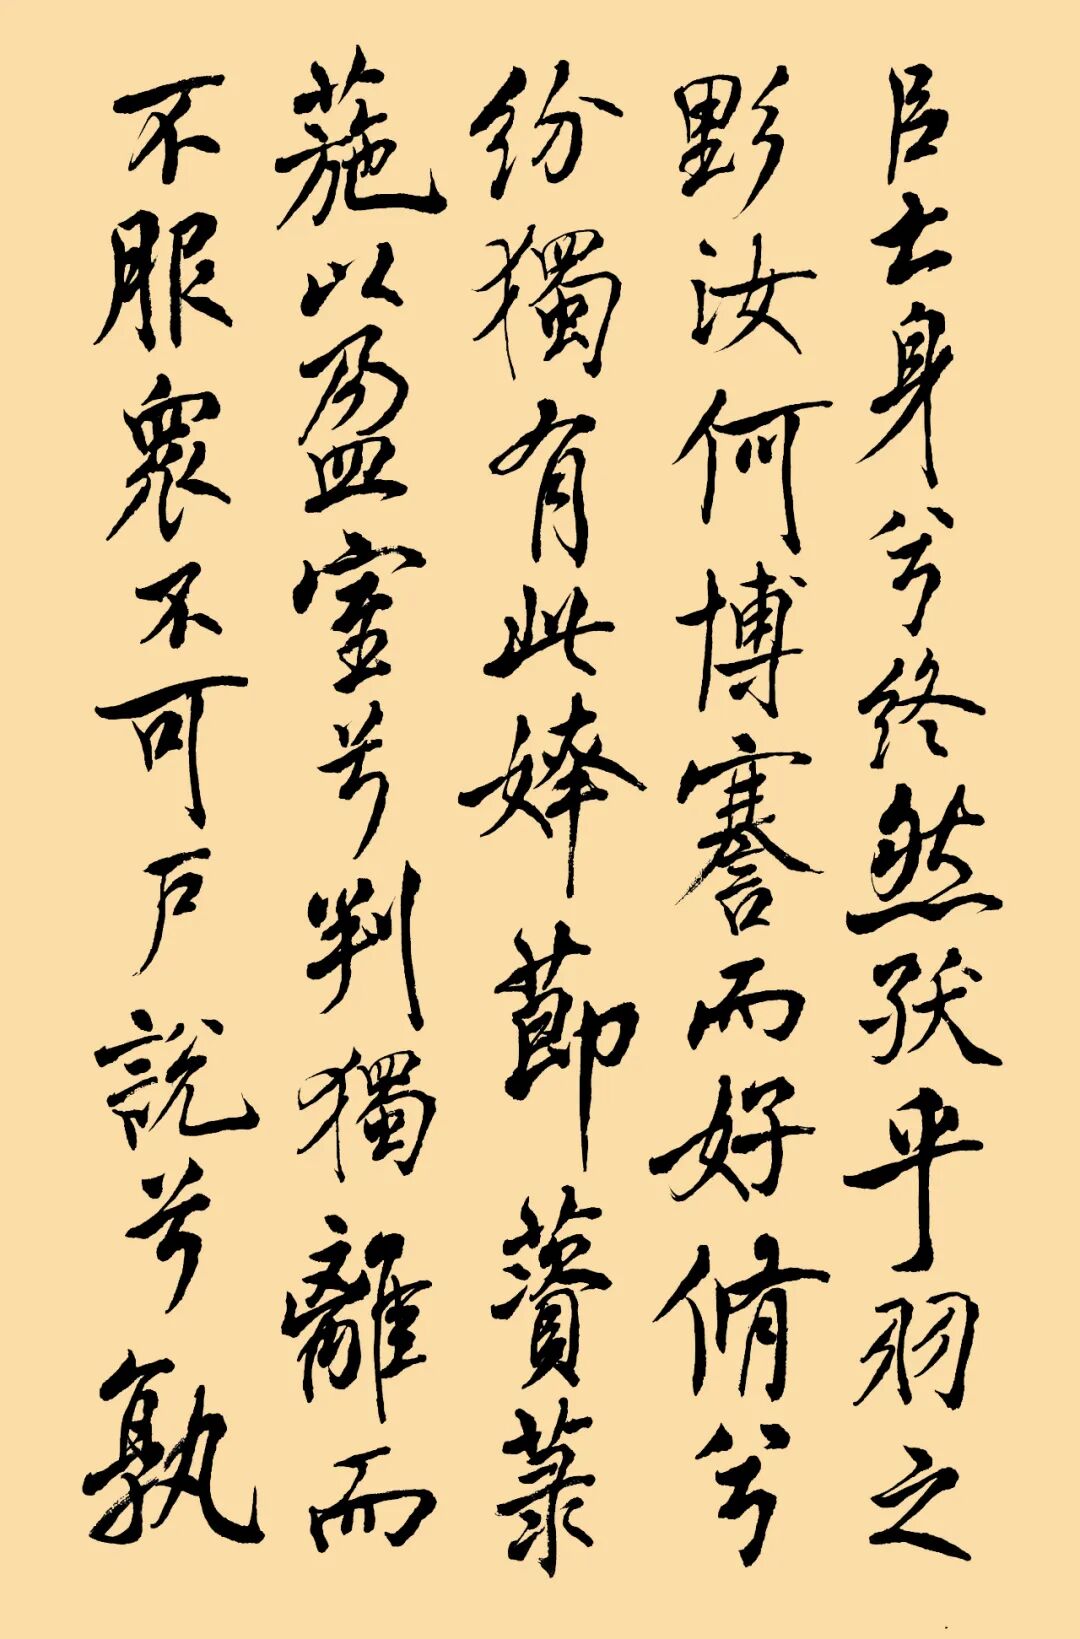 㠯亡身兮終然殀乎羽之
野汝何博謇而好脩兮
紛獨有此姱節薋菉
葹以盈室兮判獨離而
不服衆不可戶說兮孰